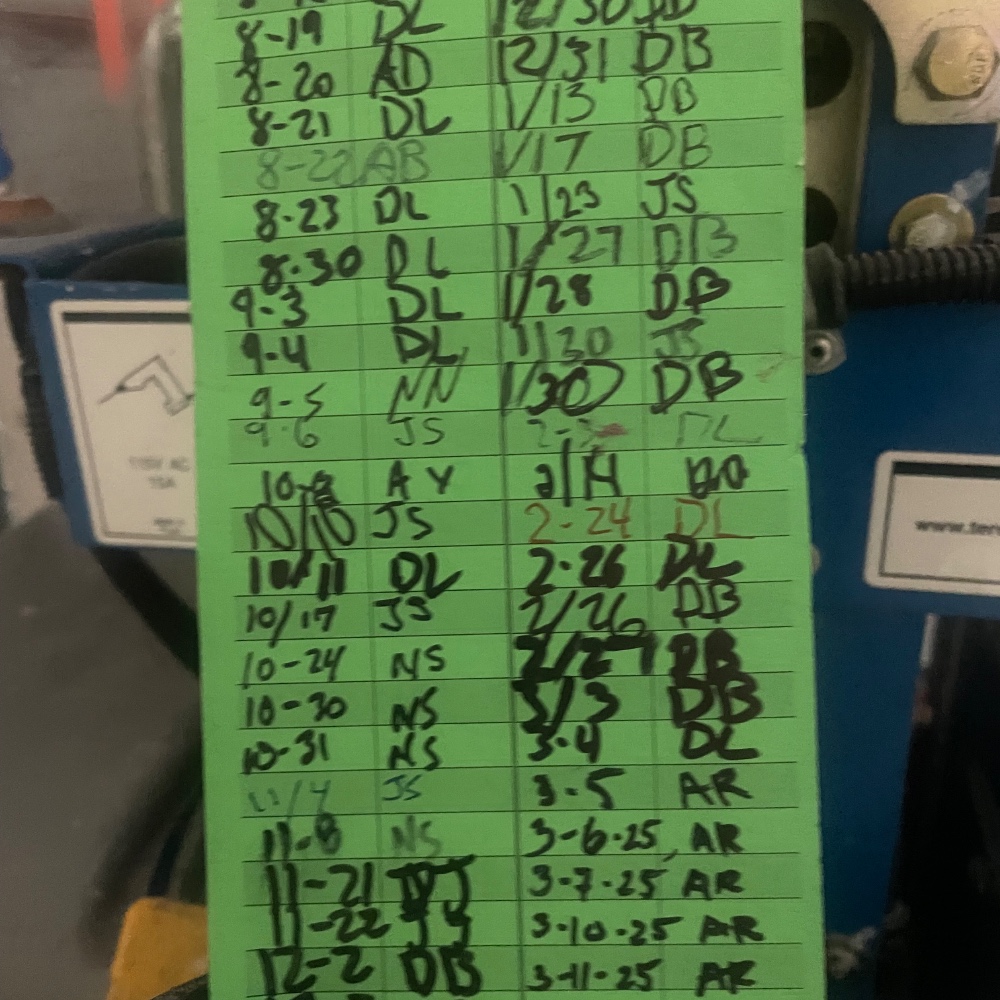 8-19 DL 12/30 DB
8-20 AD 12/31 DB
8-21 DL 1/13 DB
8-22 AB 1/17 DB
8-23 DL 1/23 JS
8-30 DL 1/27 DB
9-3 DL 1/28 DB
9-4 DL 1/30 JS
9-5 NN 1/30 DB
9-6 JS DL
AY 2/14
10/10 JS 2-24 DL
10/11 DL 2-26 DL
10/17 JS 2/26 DB
10-24 NS 2/27 DB
10-30 NS 3/3 DB
10-31 NS 3-4 DL
11/4 JS 3-5 AR
11-8 NS 3-6-25, AR
11-21 3-7-25 AR
11-22 3-10-25 AR
12-2 DB 3-11-25 AR
115V AC
15A
www.ter